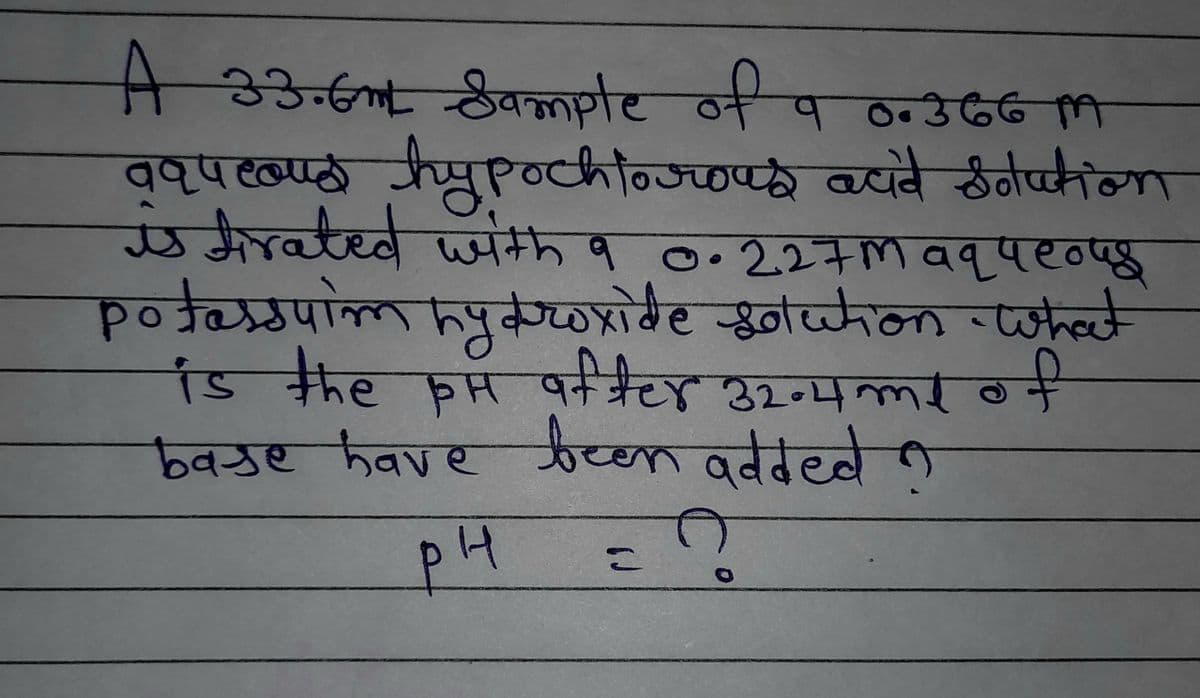 A 33.6mL Sample of a 0.366 M
aqueous hypochlorous acid Solution
is tirated with a 0.227M aqueous
potassuim hydroxide solution. What
is the pH after 32.4ml of
base have been added ?
pH = ?